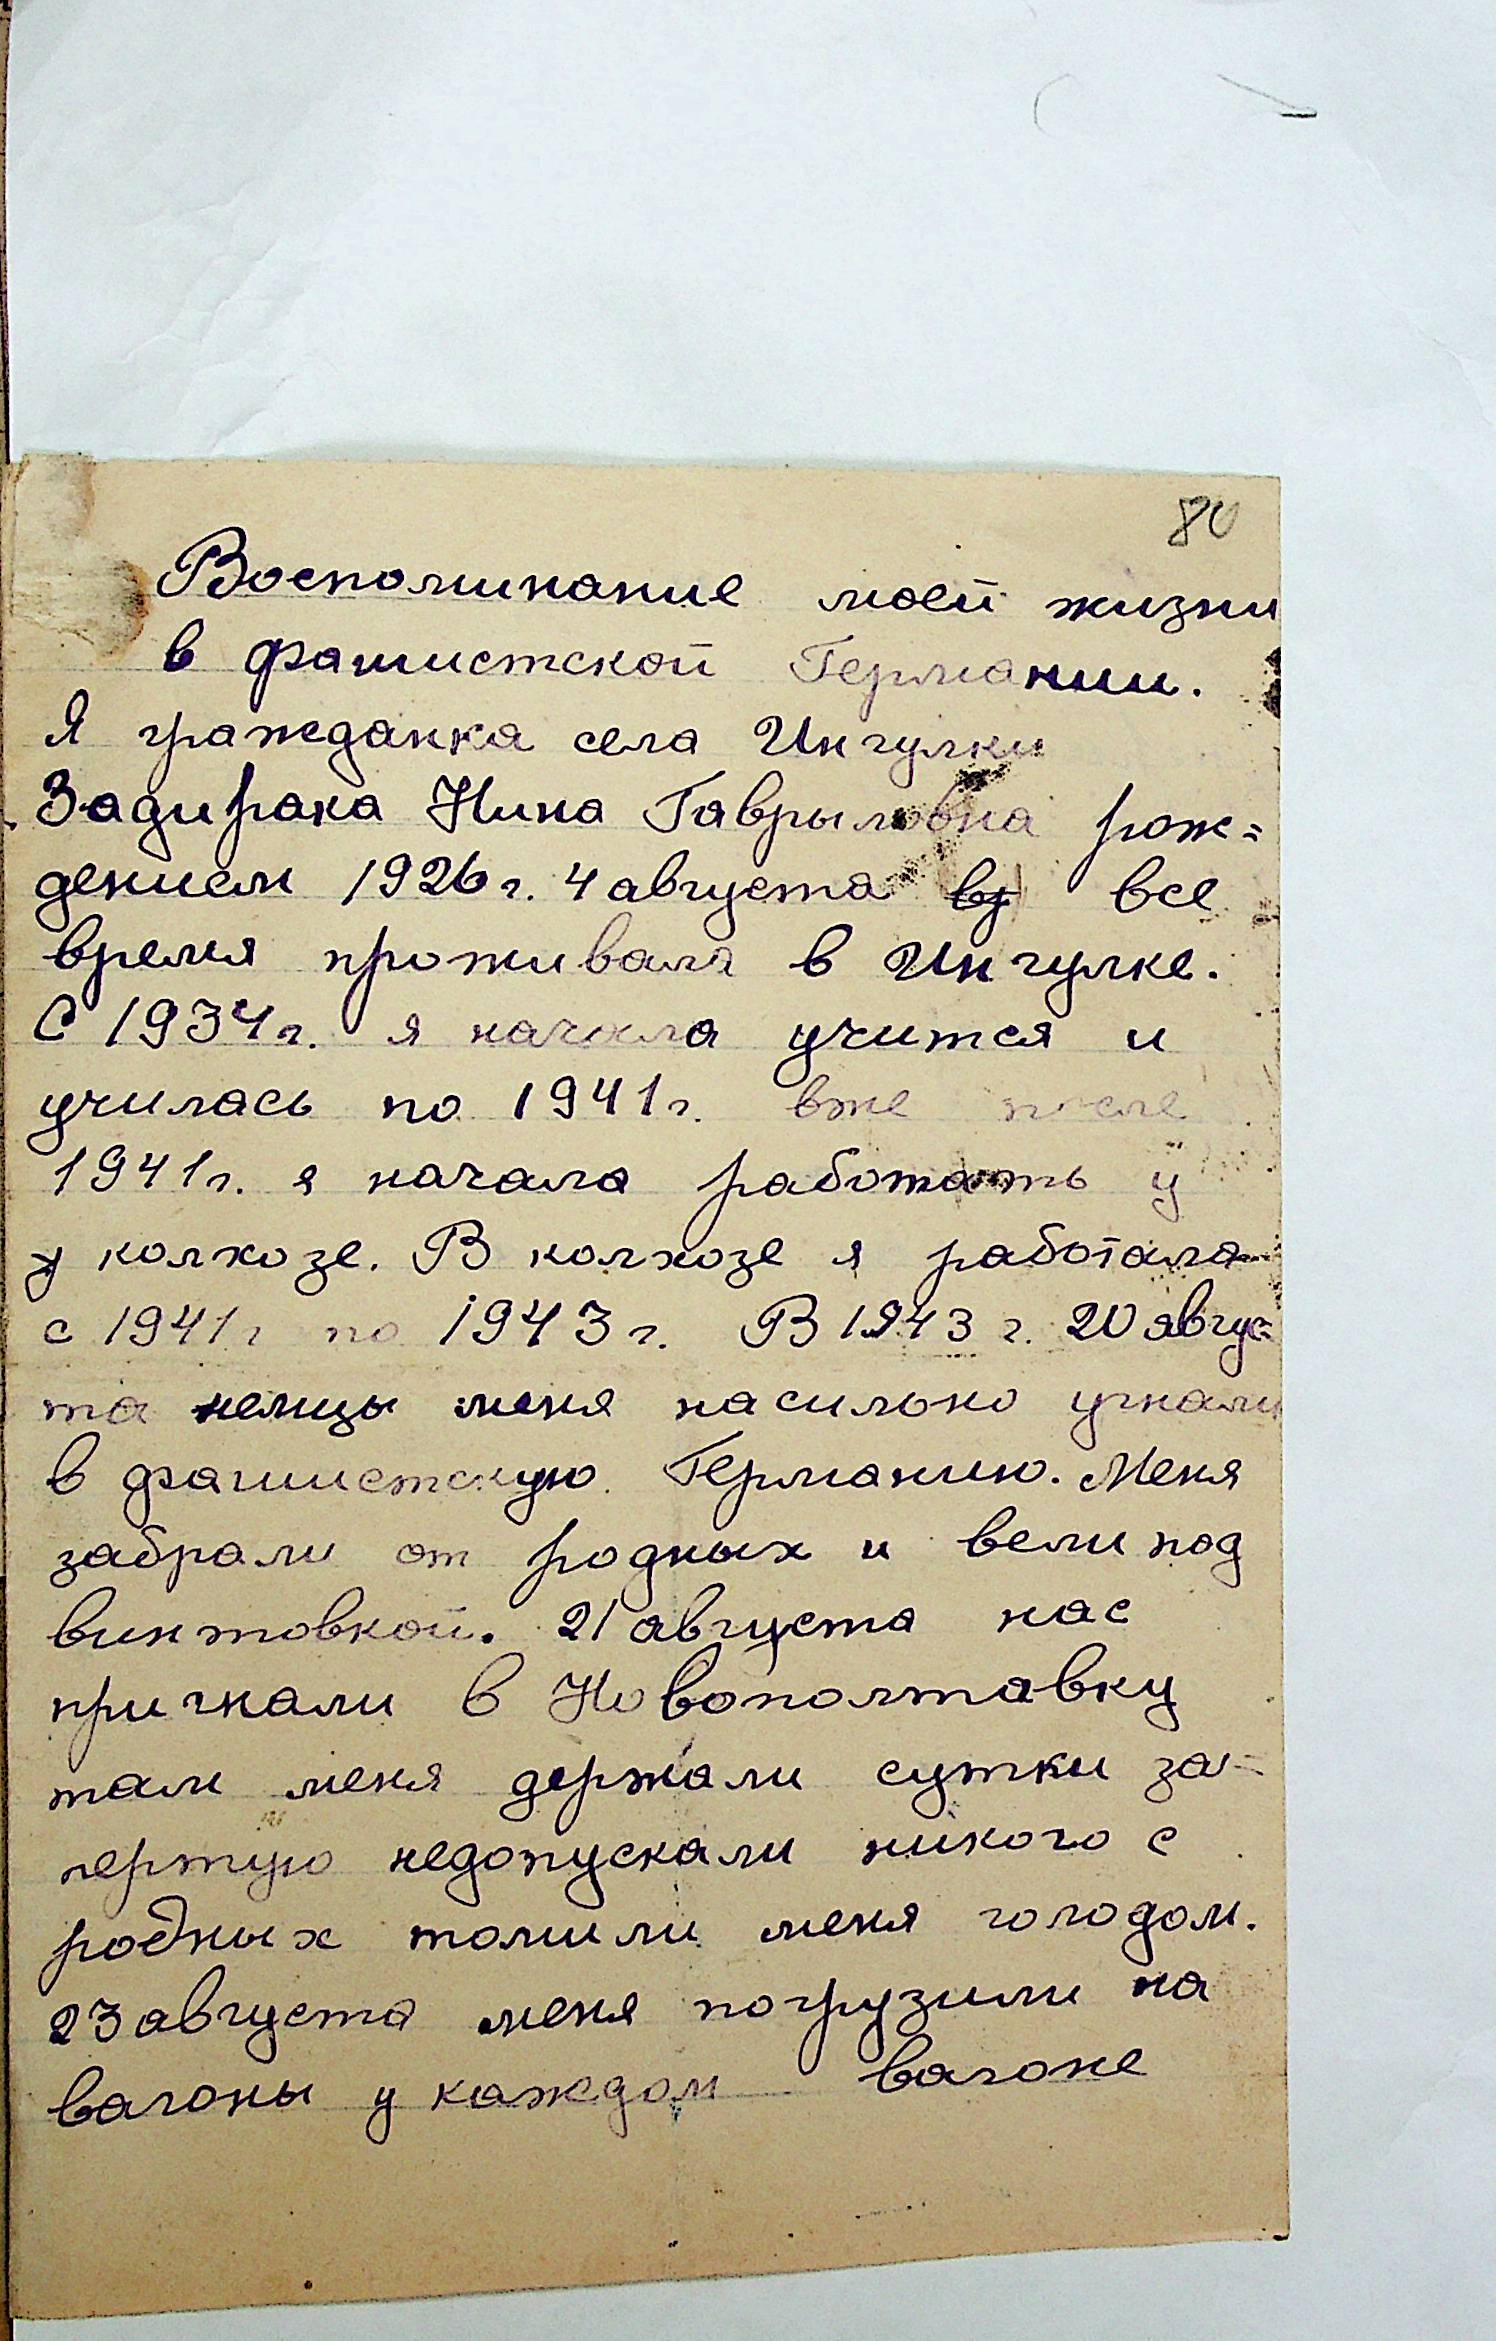 80
Воспоминание моей жизни
в фашистской Германии.
Я гражданка села Ингулки
Задирака Нина Гаврыловна рож=
дением 1926 г. 4 августа все
время проживала в Ингулке.
С 1934 г. я начала учится и
училась по 1941 г. вже после
1941 г. я начала работать у
у колхозе. В колхозе я работала
с 1941 г по 1943 г. В 1943 г. 20 авгус=
та немцы меня насильно угнали
в фашистскую Германию. Меня
забрали от родных и вели под
винтовкой. 21 августа нас
пригнали в Новополтавку
там меня держали сутки за-
пертую недопускали никого с
родных томили меня голодом.
23 августа меня погрузили на
вагоны у каждом вагоне